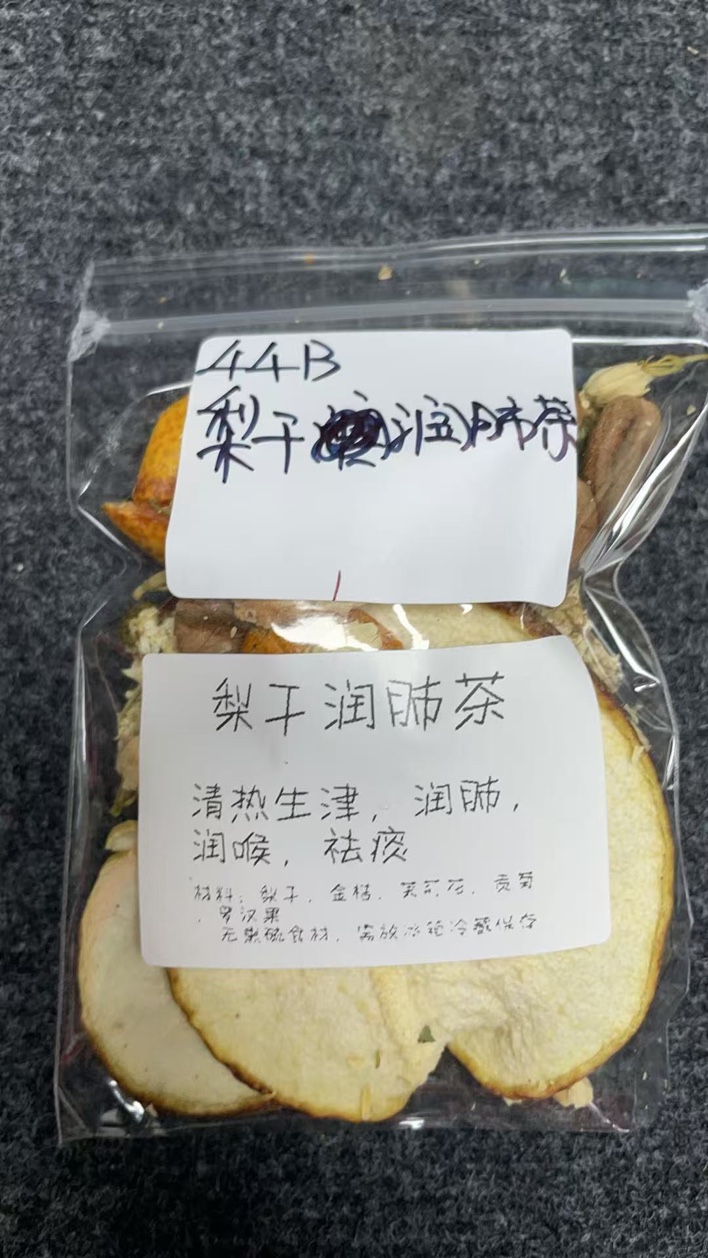 44B
梨干润肺茶
梨干润肺茶
清热生津，润肺，
润喉，祛痰
材料：梨干，金桔，茉莉花，贡菊
，罗汉果
无熏硫食材，需放冰箱冷藏保存